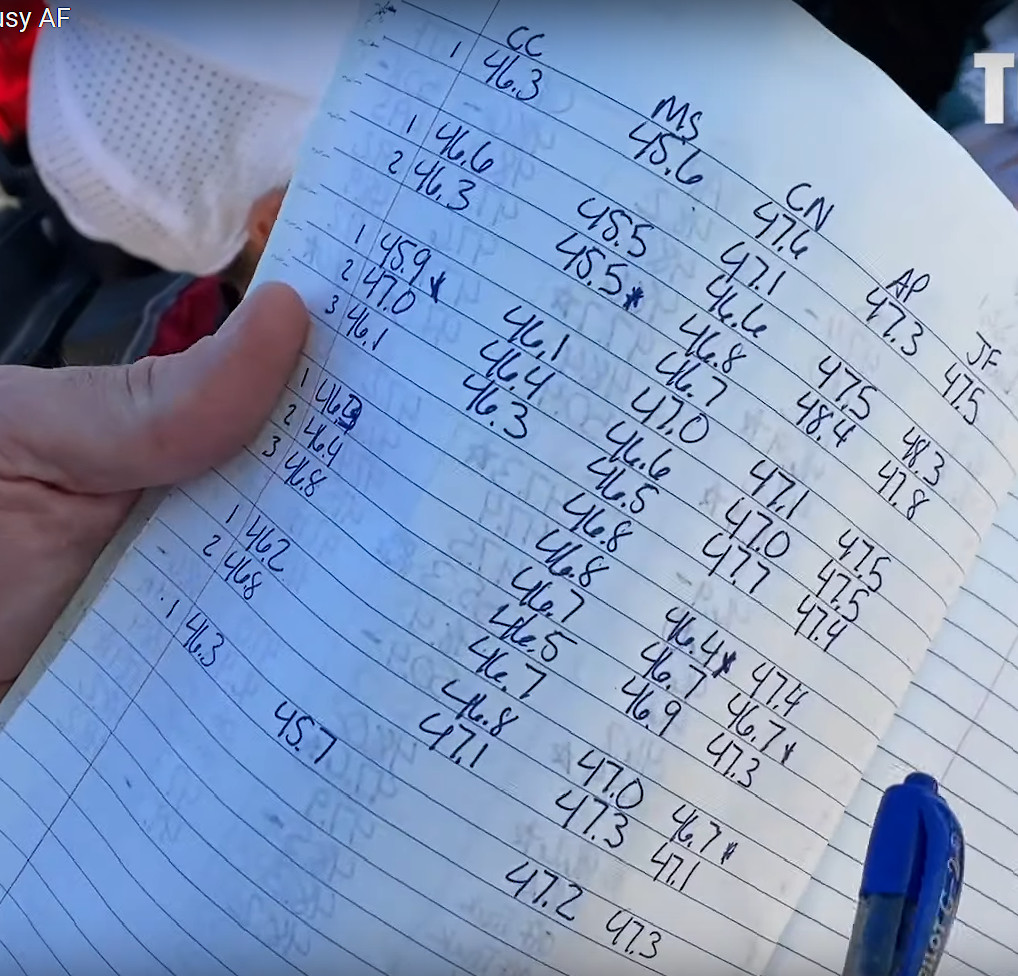 usy AF
T
CC MS CN AP JF
1 46.3 45.6 47.6 47.3 47.5
1 46.6 45.5 47.1 47.5 48.3
2 46.3 45.5* 46.6 48.4 47.8
46.8
46.7
1 45.9* 46.1 47.0 47.1 47.5
2 47.0 46.4 46.6 47.0 47.5
3 46.1 46.3 46.5 47.7 47.4
46.8
1 46.8 46.4* 47.4
2 46.4 46.7 46.7 46.7*
3 46.8 46.5 46.9 47.3
46.7
1 46.2 46.8 47.0 46.7*
2 46.8 47.1 47.3 47.1
1 46.3 45.7 47.2 47.3
PILOT G-2